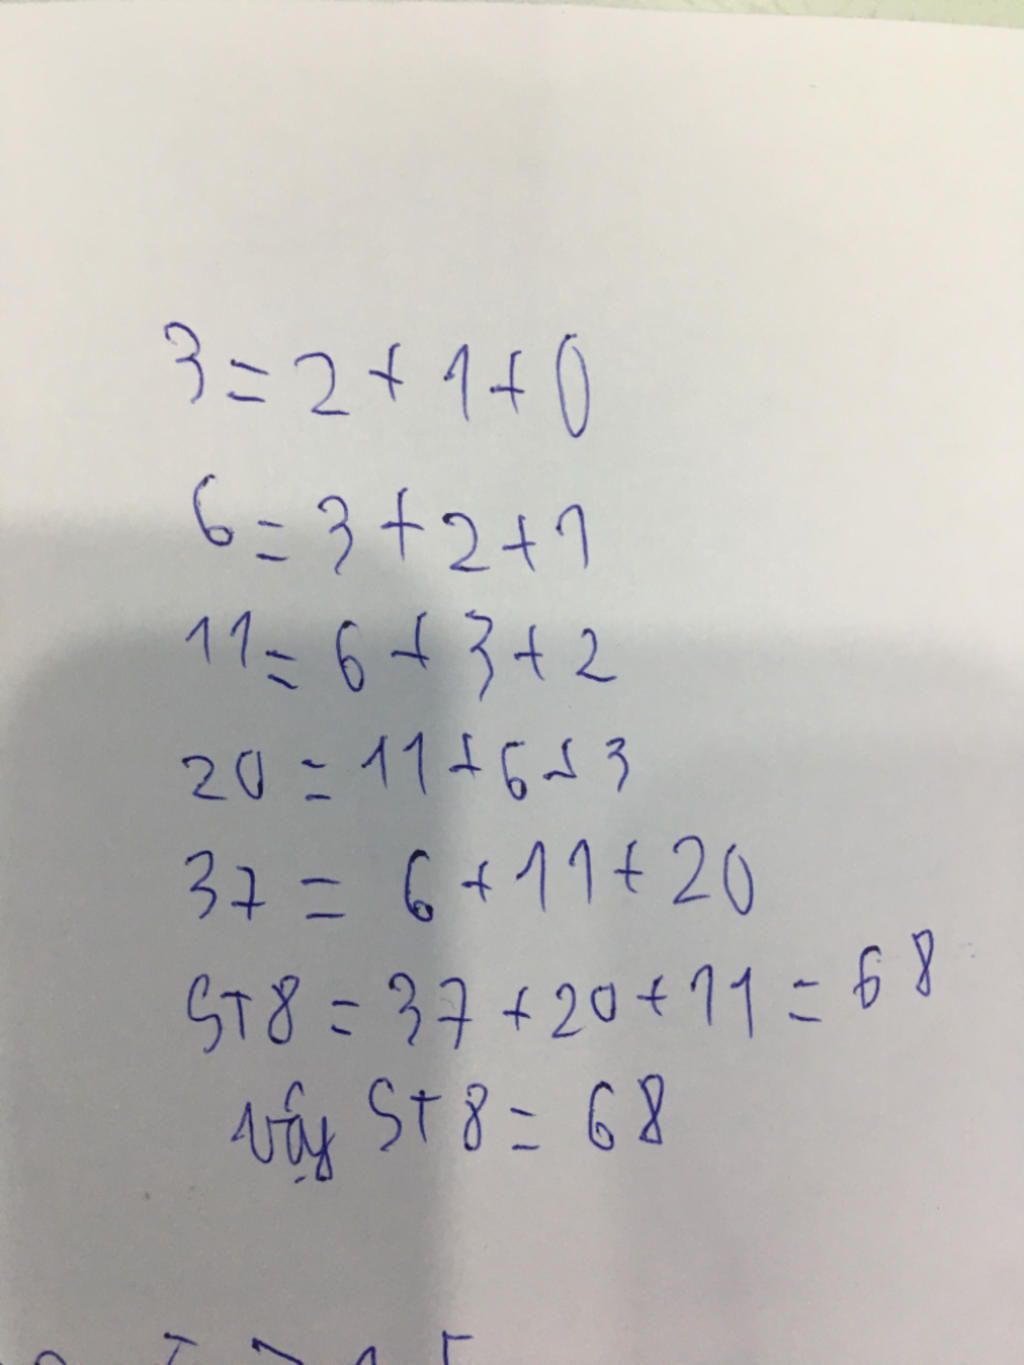 3 = 2 + 1 + 0
6 = 3 + 2 + 1
11 = 6 + 3 + 2
20 = 11 + 6 + 3
37 = 6 + 11 + 20
ST8 = 37 + 20 + 11 = 68
vậy ST8 = 68